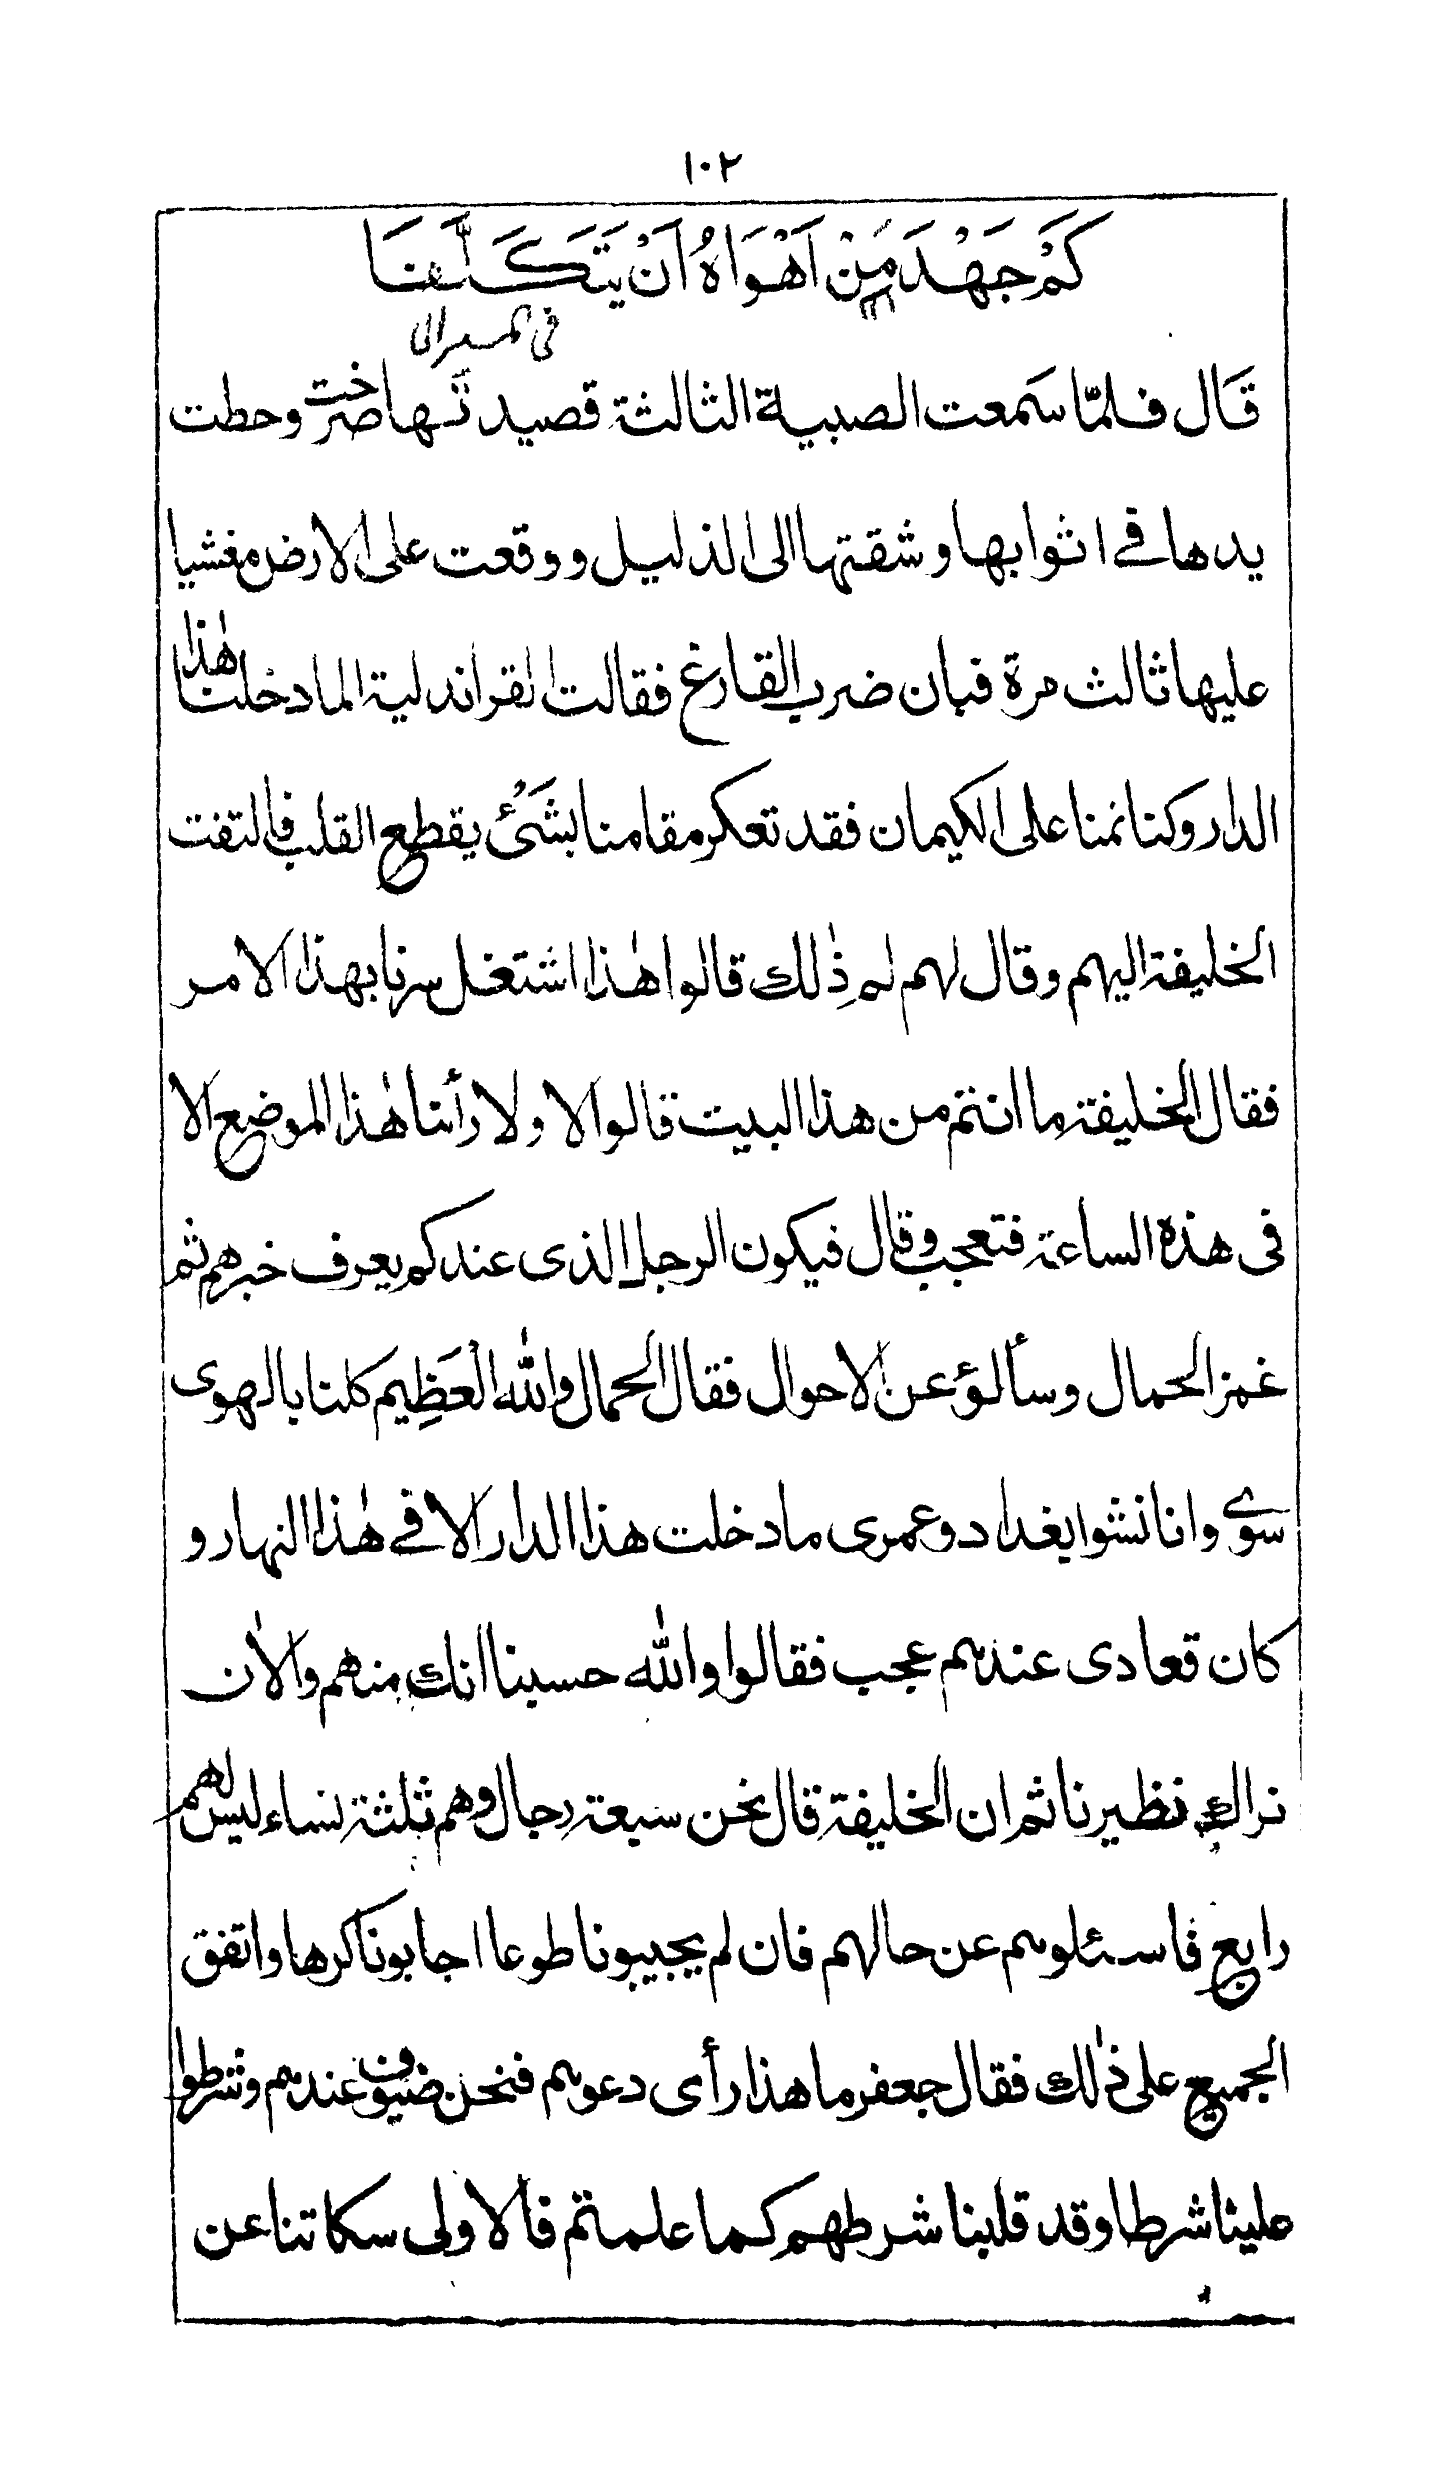 ١٠٢
كَمْ جَهْدَ مَنْ اَهْوَاهُ اَنْ يَتَكَلَّفَنَا
قَال فلمّا سَمعت الصبية الثالثة قصيدتَها صرخت وحطت
يدها فے اثوابها وشقتها الى الذليل ووقعت على الارض مغشيا
عليها ثالث مرة فبان ضرب القارغ فقالت القراندلية الما دخلنا هٰذا
الدار وكنا نمنا على الكيمان فقد تعكر مقامنا بشَئْ يقطع القلب فالتفت
الخليفة اليهم وقال لهم لم ذٰلك قالوا هٰذا اشتغل سرنا بهذا الامر
فقال الخليفة ما انتم من هذا البيت قالوا لا ولا رأنا هٰذا الموضع الا
فى هذه الساعة فتعجب وقال فيكون الرجل الذى عندكم يعرف خبرهم ثم
غمز الحمال وسألوٗ عن الاحوال فقال الحمال والله الْعَظِيم كلنا بالهوى
سوے وانا نشوا بغداد وعمرى ما دخلت هذا الدار الا فے هٰذا النهار و
كان قعادى عندهم عجب فقالوا والله حسبنا انك منهم والاٰن
نراك نظيرنا ثم ان الخليفة قال نحن سبعة رجال وهم ثلثة نساء ليس لهم
رابع فاسئلوهم عن حالهم فان لم يجيبونا طوعا اجابونا كرها واتفق
الجميع على ذٰلك فقال جعفر ما هذا رأى دعوهم فنحن ضيوف عندهم وشرطوا
علينا شرطا وقد قلبنا شرطهم كما علمتم فالاولى سكاتنا عن